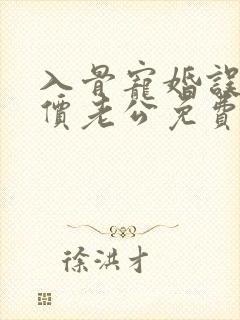 入骨寵婚誤
價老公免費
徐洪才